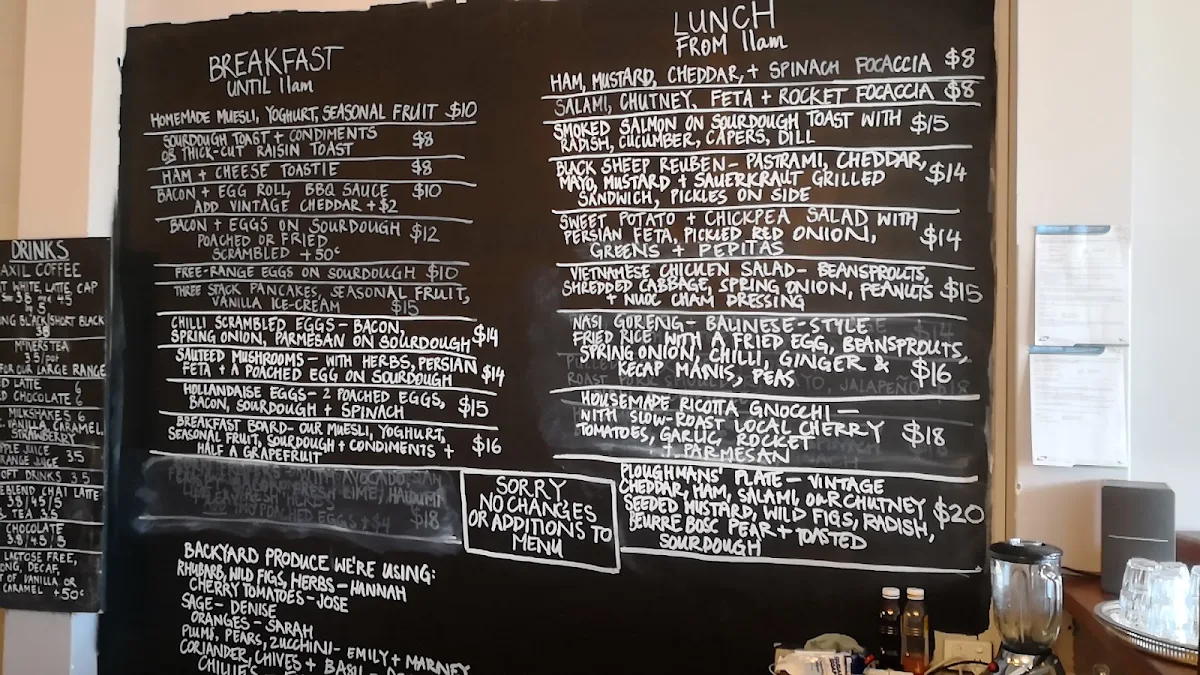 BREAKFAST
UNTIL 11am
HOMEMADE MUESLI, YOGHURT, SEASONAL FRUIT $10
SOURDOUGH TOAST + CONDIMENTS
OR THICK-CUT RAISIN TOAST $8
HAM + CHEESE TOASTIE $8
BACON + EGG ROLL, BBQ SAUCE $10
ADD VINTAGE CHEDDAR +$2
BACON + EGGS ON SOURDOUGH
POACHED OR FRIED $12
SCRAMBLED +50c
FREE-RANGE EGGS ON SOURDOUGH $10
THREE STACK PANCAKES, SEASONAL FRUIT,
VANILLA ICE-CREAM $15
CHILLI SCRAMBLED EGGS - BACON,
SPRING ONION, PARMESAN ON SOURDOUGH $14
SAUTEED MUSHROOMS - WITH HERBS, PERSIAN
FETA + A POACHED EGG ON SOURDOUGH $14
HOLLANDAISE EGGS - 2 POACHED EGGS,
BACON, SOURDOUGH + SPINACH $15
BREAKFAST BOARD - OUR MUESLI, YOGHURT,
SEASONAL FRUIT, SOURDOUGH + CONDIMENTS + $16
HALF A GRAPEFRUIT
WITH AVOCADO,
FRESH LIME,
POACHED EGGS +$4 $18
SORRY
NO CHANGES
OR ADDITIONS TO
MENU
BACKYARD PRODUCE WE'RE USING:
RHUBARB, WILD FIGS, HERBS - HANNAH
CHERRY TOMATOES - JOSE
SAGE - DENISE
ORANGES - SARAH
PLUMS, PEARS, ZUCCHINI - EMILY + MARNEY
CORIANDER, CHIVES + BASIL
CHILLIES
LUNCH
FROM 11am
HAM, MUSTARD, CHEDDAR, + SPINACH FOCACCIA $8
SALAMI, CHUTNEY, FETA + ROCKET FOCACCIA $8
SMOKED SALMON ON SOURDOUGH TOAST WITH $15
RADISH, CUCUMBER, CAPERS, DILL
BLACK SHEEP REUBEN - PASTRAMI, CHEDDAR,
MAYO, MUSTARD + SAUERKRAUT GRILLED $14
SANDWICH, PICKLES ON SIDE
SWEET POTATO + CHICKPEA SALAD WITH
PERSIAN FETA, PICKLED RED ONION, $14
GREENS + PEPITAS
VIETNAMESE CHICKEN SALAD - BEANSPROUTS,
SHREDDED CABBAGE, SPRING ONION, PEANUTS $15
+ NUOC CHAM DRESSING
NASI GORENG - BALINESE-STYLE
FRIED RICE WITH A FRIED EGG, BEANSPROUTS,
SPRING ONION, CHILLI, GINGER & $16
KECAP MANIS, PEAS
HOUSEMADE RICOTTA GNOCCHI -
WITH SLOW-ROAST LOCAL CHERRY $18
TOMATOES, GARLIC, ROCKET
+ PARMESAN
PLOUGHMANS' PLATE - VINTAGE
CHEDDAR, HAM, SALAMI, OUR CHUTNEY
SEEDED MUSTARD, WILD FIGS, RADISH, $20
BEURRE BOSC PEAR + TOASTED
SOURDOUGH
DRINKS
AXIL COFFEE
T WHITE, LATTE, CAP
3.8 4.5
NG BLACK/SHORT BLACK
3.8
TEA
3.5/pot
FOR OUR LARGE RANGE
ED LATTE 6
ED CHOCOLATE 6
MILKSHAKES 6
VANILLA, CARAMEL,
STRAWBERRY
PPLE JUICE 3.5
RANGE JUICE
OFT DRINKS 3.5
EBLEND CHAI LATTE
3.8/4.5/5
TEA 3.5
CHOCOLATE
3.8/4.5/5
LACTOSE FREE,
ONG, DECAF,
T OF VANILLA OR
CARAMEL +50c